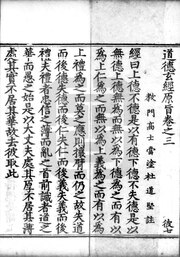 道德玄經原旨卷之三
彼七
教門高士當塗杜道堅註
經曰上德不德是以有德下德不失德是以
無德上德無為而無以為下德為之而有以
為上仁為之而無以為上義為之而有以為
上禮為之而莫之應則攘臂而仍之故失道
而後德失德而後仁失仁而後義失義而後
禮夫禮者忠信之薄而亂之首前識者道之
華而愚之始是以大丈夫處其厚不居其薄
處其實不居其華故去彼取此